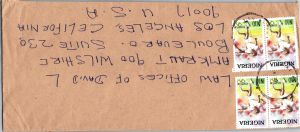 LAW OFFICES OF DAVID L
AMKRAUT 900 WILSHIRE
BOULEVRD. SUITE 230
LOS ANGELES CALIFORNIA
90017 U.S.A
NIGERIA
NIGERIA
NIGERIA
NIGERIA